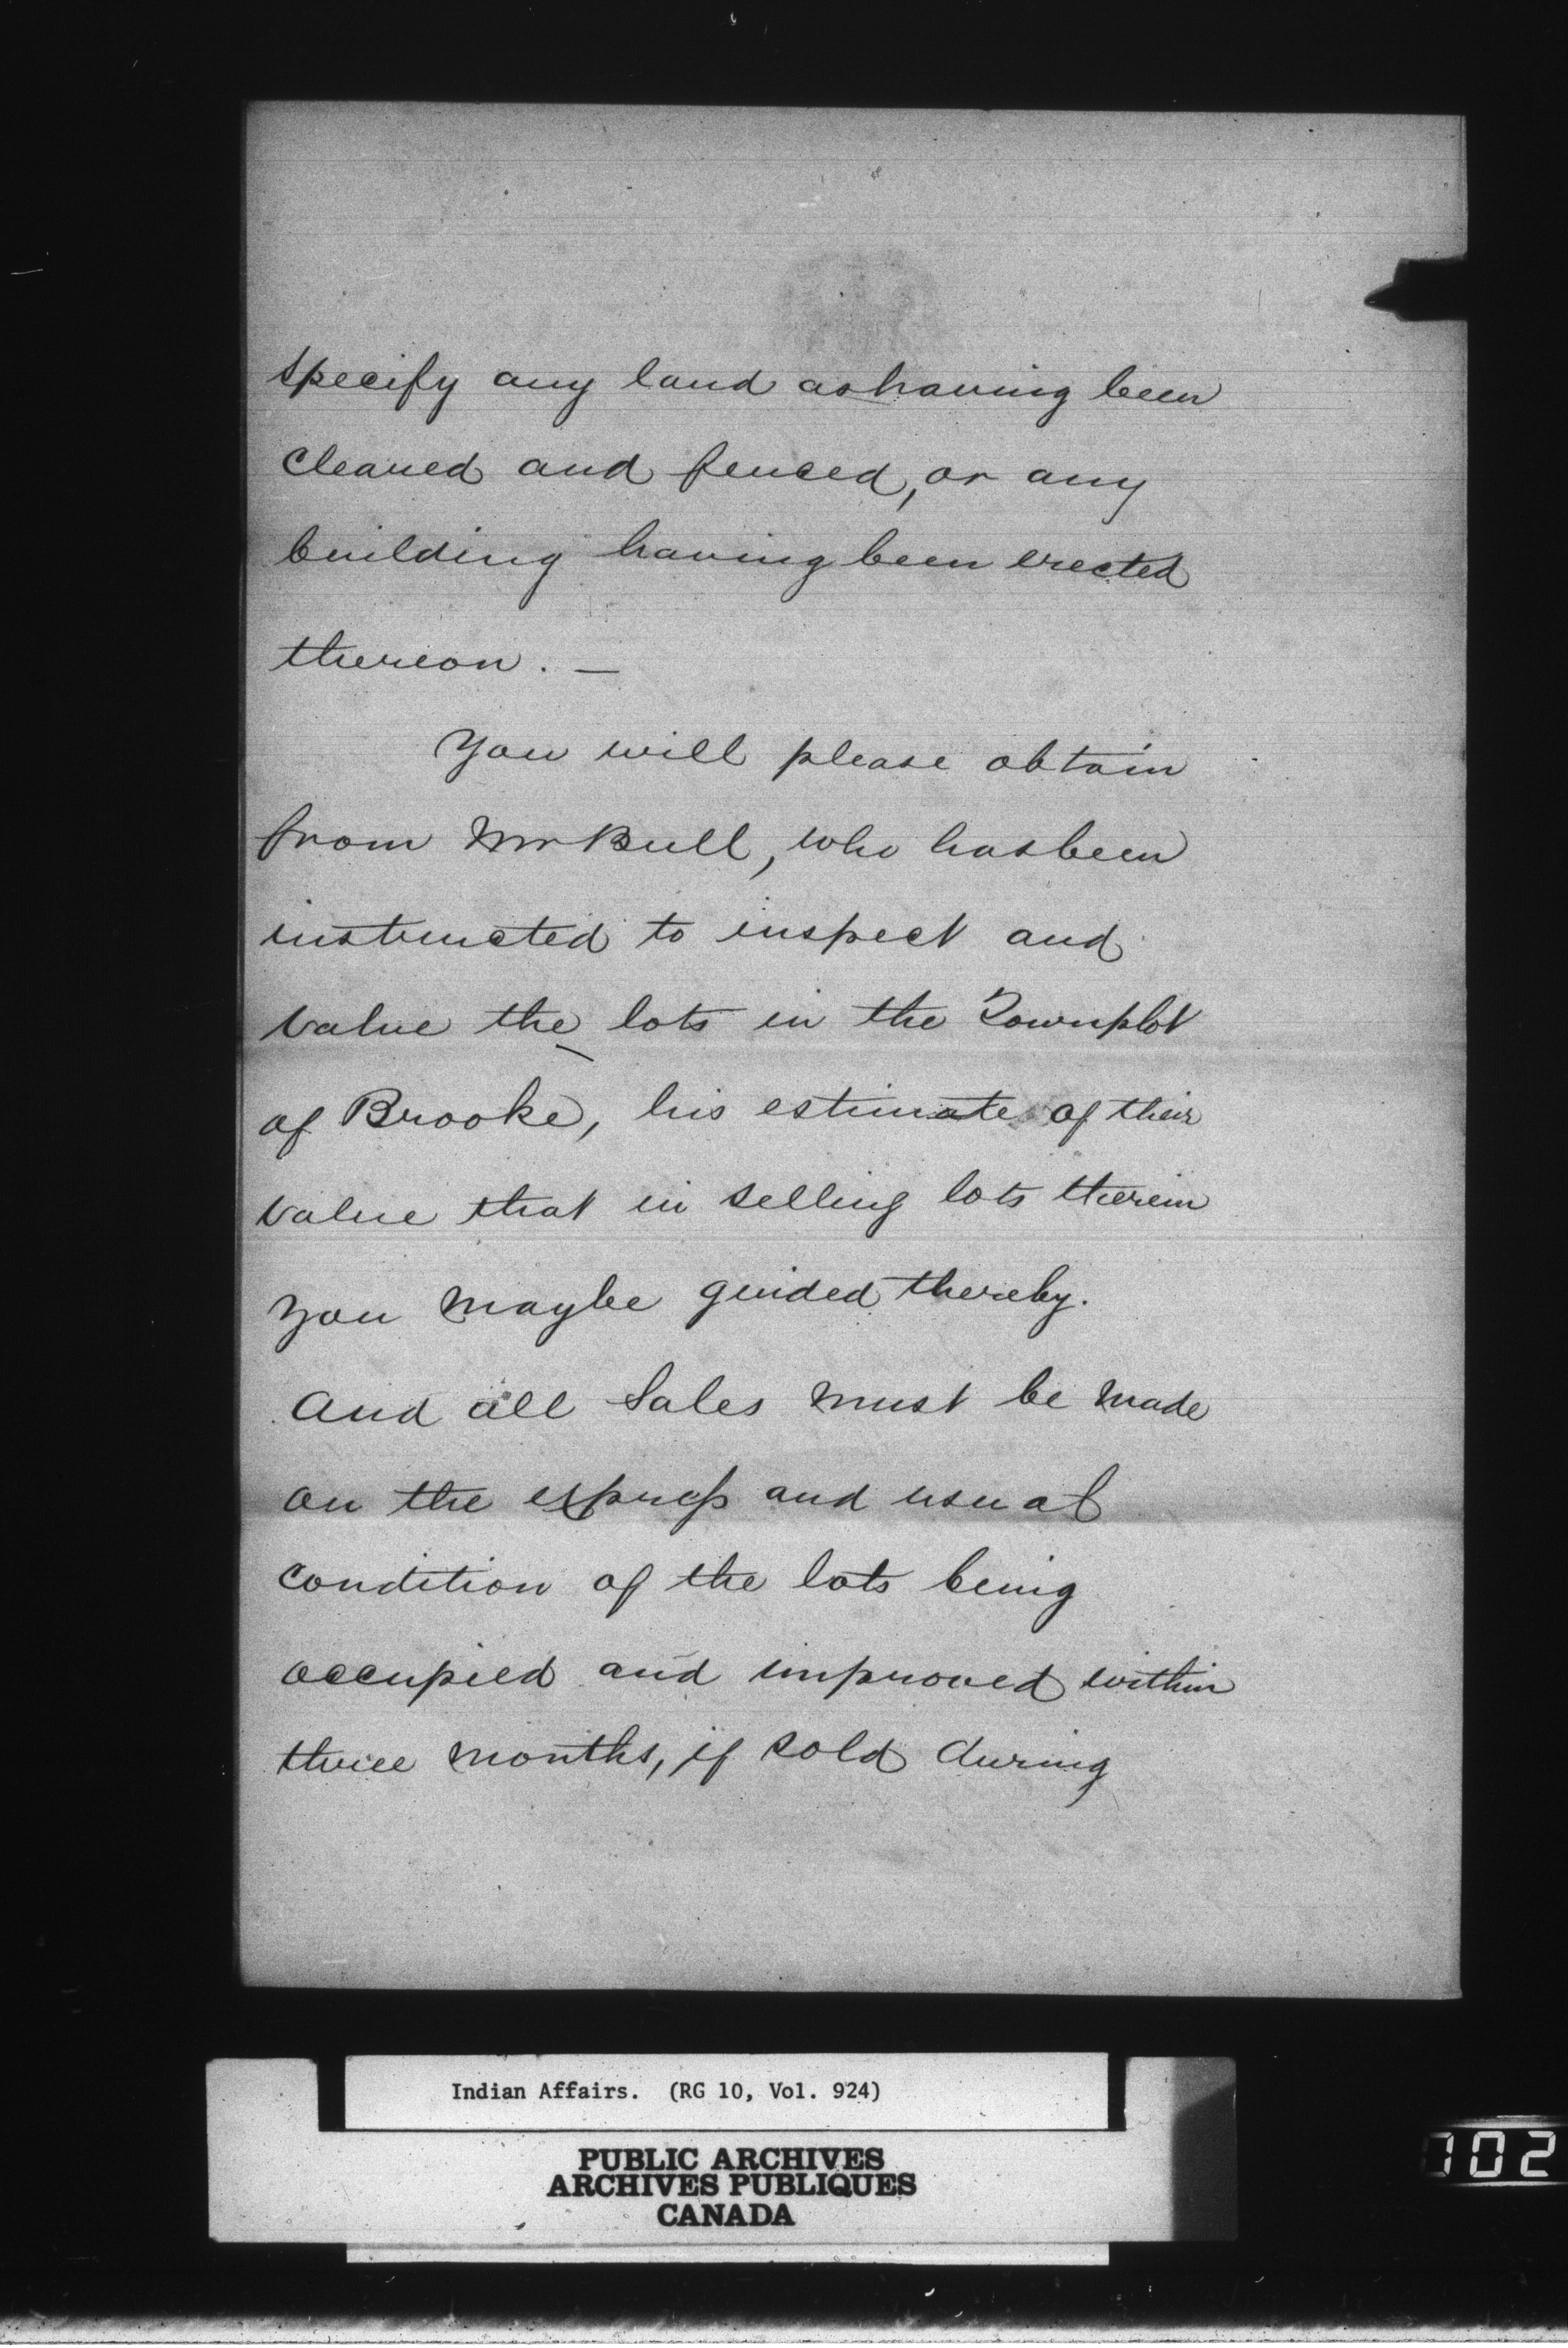 specify any land as having been
cleared and fenced, or any
building having been erected
thereon. —
You will please obtain
from Mr Bull, who has been
instructed to inspect and
value the lots in the Townplot
of Brooke, his estimate of their
value that in selling lots therein
you maybe guided thereby.
And all Sales must be made
on the express and usual
condition of the lots being
occupied and improved within
three months, if sold during
Indian Affairs. (RG 10, Vol. 924)
PUBLIC ARCHIVES
ARCHIVES PUBLIQUES
CANADA
702